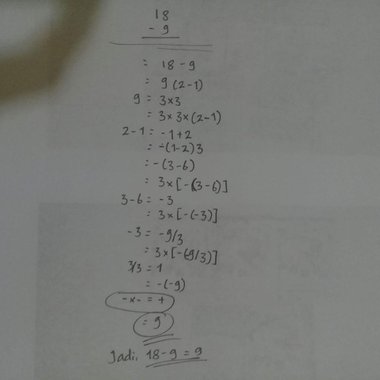 18
- 9
= 18 - 9
= 9 (2-1)
9 = 3x3
= 3x3x(2-1)
2-1 = -1+2
= -(1-2)3
= -(3-6)
= 3x[-(3-6)]
3-6 = -3
= 3x[-(-3)]
-3 = -9/3
= 3x[-(-9/3)]
3/3 = 1
= -(-9)
-x- = +
= 9
Jadi, 18-9 = 9